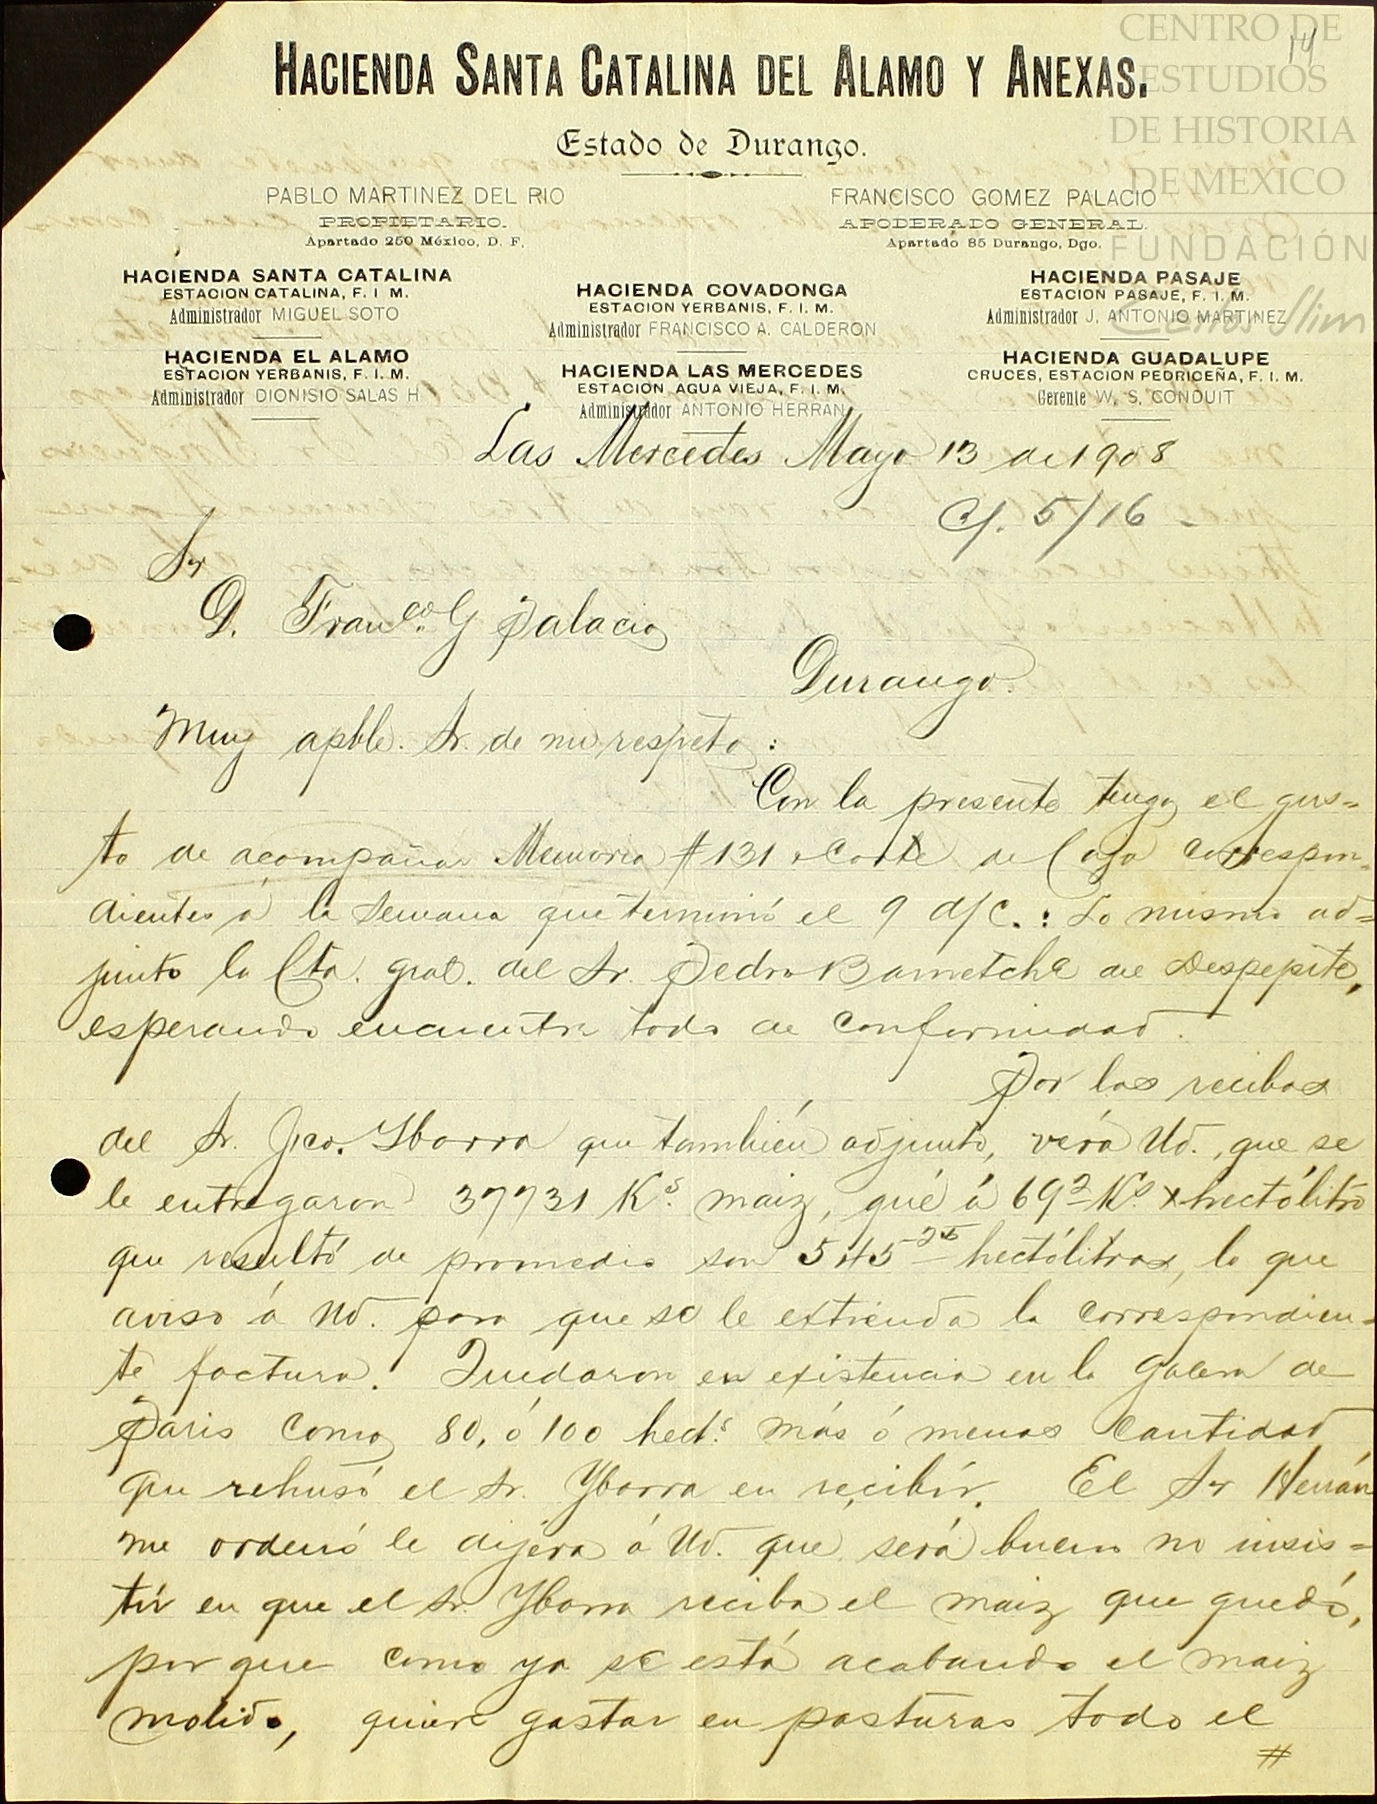 CENTRO DE
ESTUDIOS
DE HISTORIA
DE MEXICO
FUNDACIÓN
Carlos Slim
14
HACIENDA SANTA CATALINA DEL ALAMO Y ANEXAS.
Estado de Durango.
PABLO MARTINEZ DEL RIO
PROPIETARIO.
Apartado 250 México, D. F.
FRANCISCO GOMEZ PALACIO
APODERADO GENERAL.
Apartado 85 Durango, Dgo.
HACIENDA SANTA CATALINA
ESTACION CATALINA, F. I. M.
Administrador MIGUEL SOTO
HACIENDA COVADONGA
ESTACION YERBANIS, F. I. M.
Administrador FRANCISCO A. CALDERON
HACIENDA PASAJE
ESTACION PASAJE, F. I. M.
Administrador J. ANTONIO MARTINEZ
HACIENDA EL ALAMO
ESTACION YERBANIS, F. I. M.
Administrador DIONISIO SALAS H
HACIENDA LAS MERCEDES
ESTACION AGUA VIEJA, F. I. M.
Administrador ANTONIO HERRAN
HACIENDA GUADALUPE
CRUCES, ESTACION PEDRICEÑA, F. I. M.
Gerente W. S. CONDUIT
Las Mercedes Mayo 13 de 1908
C/. 5/16 -
Sr
D. Franco. G Palacio
Durango.
Muy apble. Sr. de mi respeto:
Con la presente tengo el gus=
to de acompañar Memoria #131 y Corte de Caja correspon=
dientes á la semana que terminó el 9 d/c.: Lo mismo ad=
junto la Cta. gral. del Sr. Pedro Barnetche de Despepite,
esperando encuentre todo de conformidad.
Por los recibos
del Sr. Jco. Ybarra que también adjunto, verá Ud., que se
le entregaron 37731 Ks. maiz, qué á 69 2 Ks. x hectólitro
que resultó de promedio son 545 25 hectólitros, lo que
aviso á Ud. para que se le extienda la correspondien=
te factura. Quedaron en existencia en la galera de
Paris como 80, ó 100 hects. más ó menos cantidad
que rehusó el Sr. Ybarra en recibír. El Sr Herrán
me ordenó le dijera á Ud. que será bueno no insis=
tír en que el Sr. Ybarra reciba el maiz que quedó,
porque como ya se está acabando el maiz
molido, quiere gastar en pasturas todo el
#